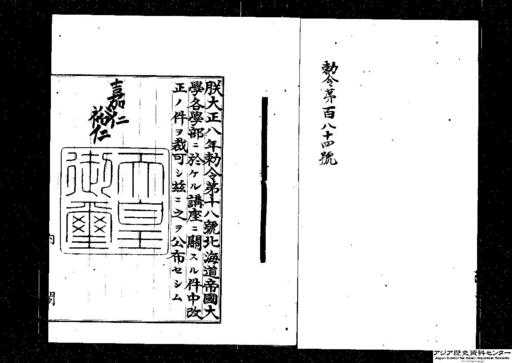 勅令第百八十四號
朕大正八年勅令第十八號北海道帝國大
學各學部ニ於ケル講座ニ關スル件中改
正ノ件ヲ裁可シ玆ニ之ヲ公布セシム
嘉仁
裕仁
天皇
御璽
内閣
アジア歴史資料センター
Japan Center for Asian Historical Records